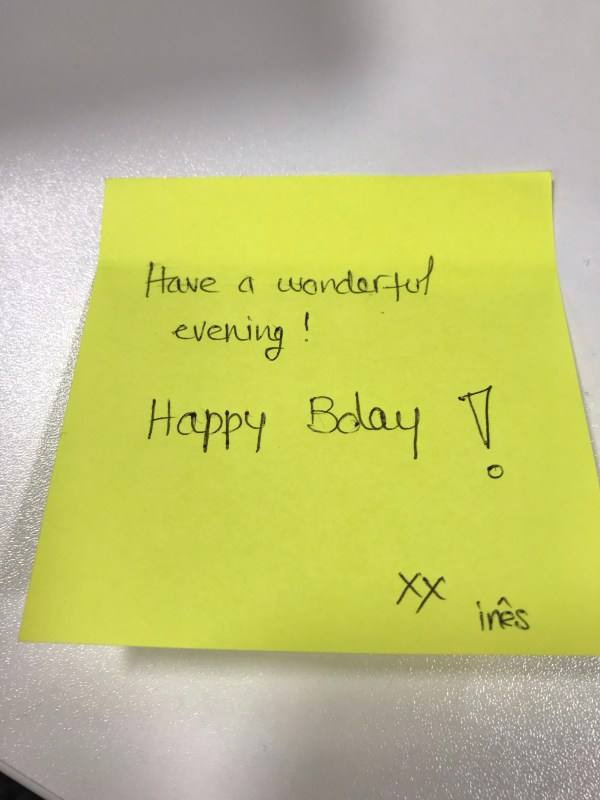 Have a wonderful
evening!
Happy Bday !
xx
inês